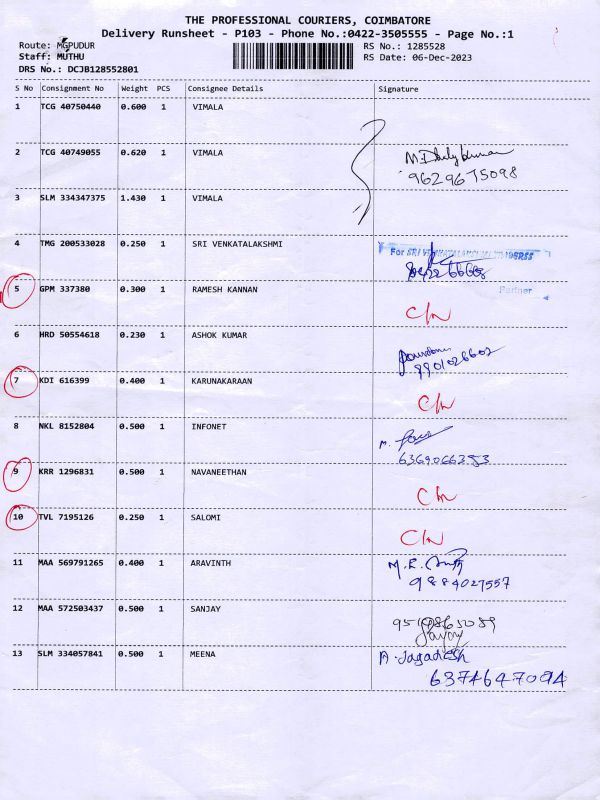 THE PROFESSIONAL COURIERS, COIMBATORE
Delivery Runsheet - P103 - Phone No.:0422-3505555 - Page No.:1
Route: MGPUDUR RS No.: 1285528
Staff: MUTHU RS Date: 06-Dec-2023
DRS No.: DCJB128552801
S No Consignment No Weight PCS Consignee Details Signature
1 TCG 40750440 0.600 1 VIMALA
2 TCG 40749055 0.620 1 VIMALA
9629675098
3 SLM 334347375 1.430 1 VIMALA
4 TMG 200533028 0.250 1 SRI VENKATALAKSHMI
For SRI
Partner
5 GPM 337380 0.300 1 RAMESH KANNAN
C/N
6 HRD 50554618 0.230 1 ASHOK KUMAR
9901026602
7 KDI 616399 0.400 1 KARUNAKARAAN
C/N
8 NKL 8152804 0.500 1 INFONET
M.
6369066383
9 KRR 1296831 0.500 1 NAVANEETHAN
C/N
10 TVL 7195126 0.250 1 SALOMI
C/N
11 MAA 569791265 0.400 1 ARAVINTH
9884027557
12 MAA 572503437 0.500 1 SANJAY
13 SLM 334057841 0.500 1 MEENA
A. Jagadesh
6374647094